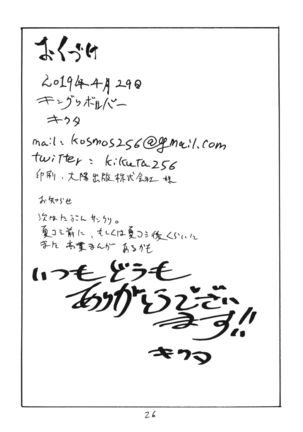 おくづけ
2019年4月29日
キングリボルバー
キクタ
mail: kosmos256@gmail.com
twitter: kikuta256
印刷:大陽出版株式会社 様
お知らせ
次はたぶんサンクリ。
夏コミ前に、もしくは夏コミ後くらいに
また お業まんが あるかも
いつもどうも
ありがとうでござい
ます!!
キクタ
26